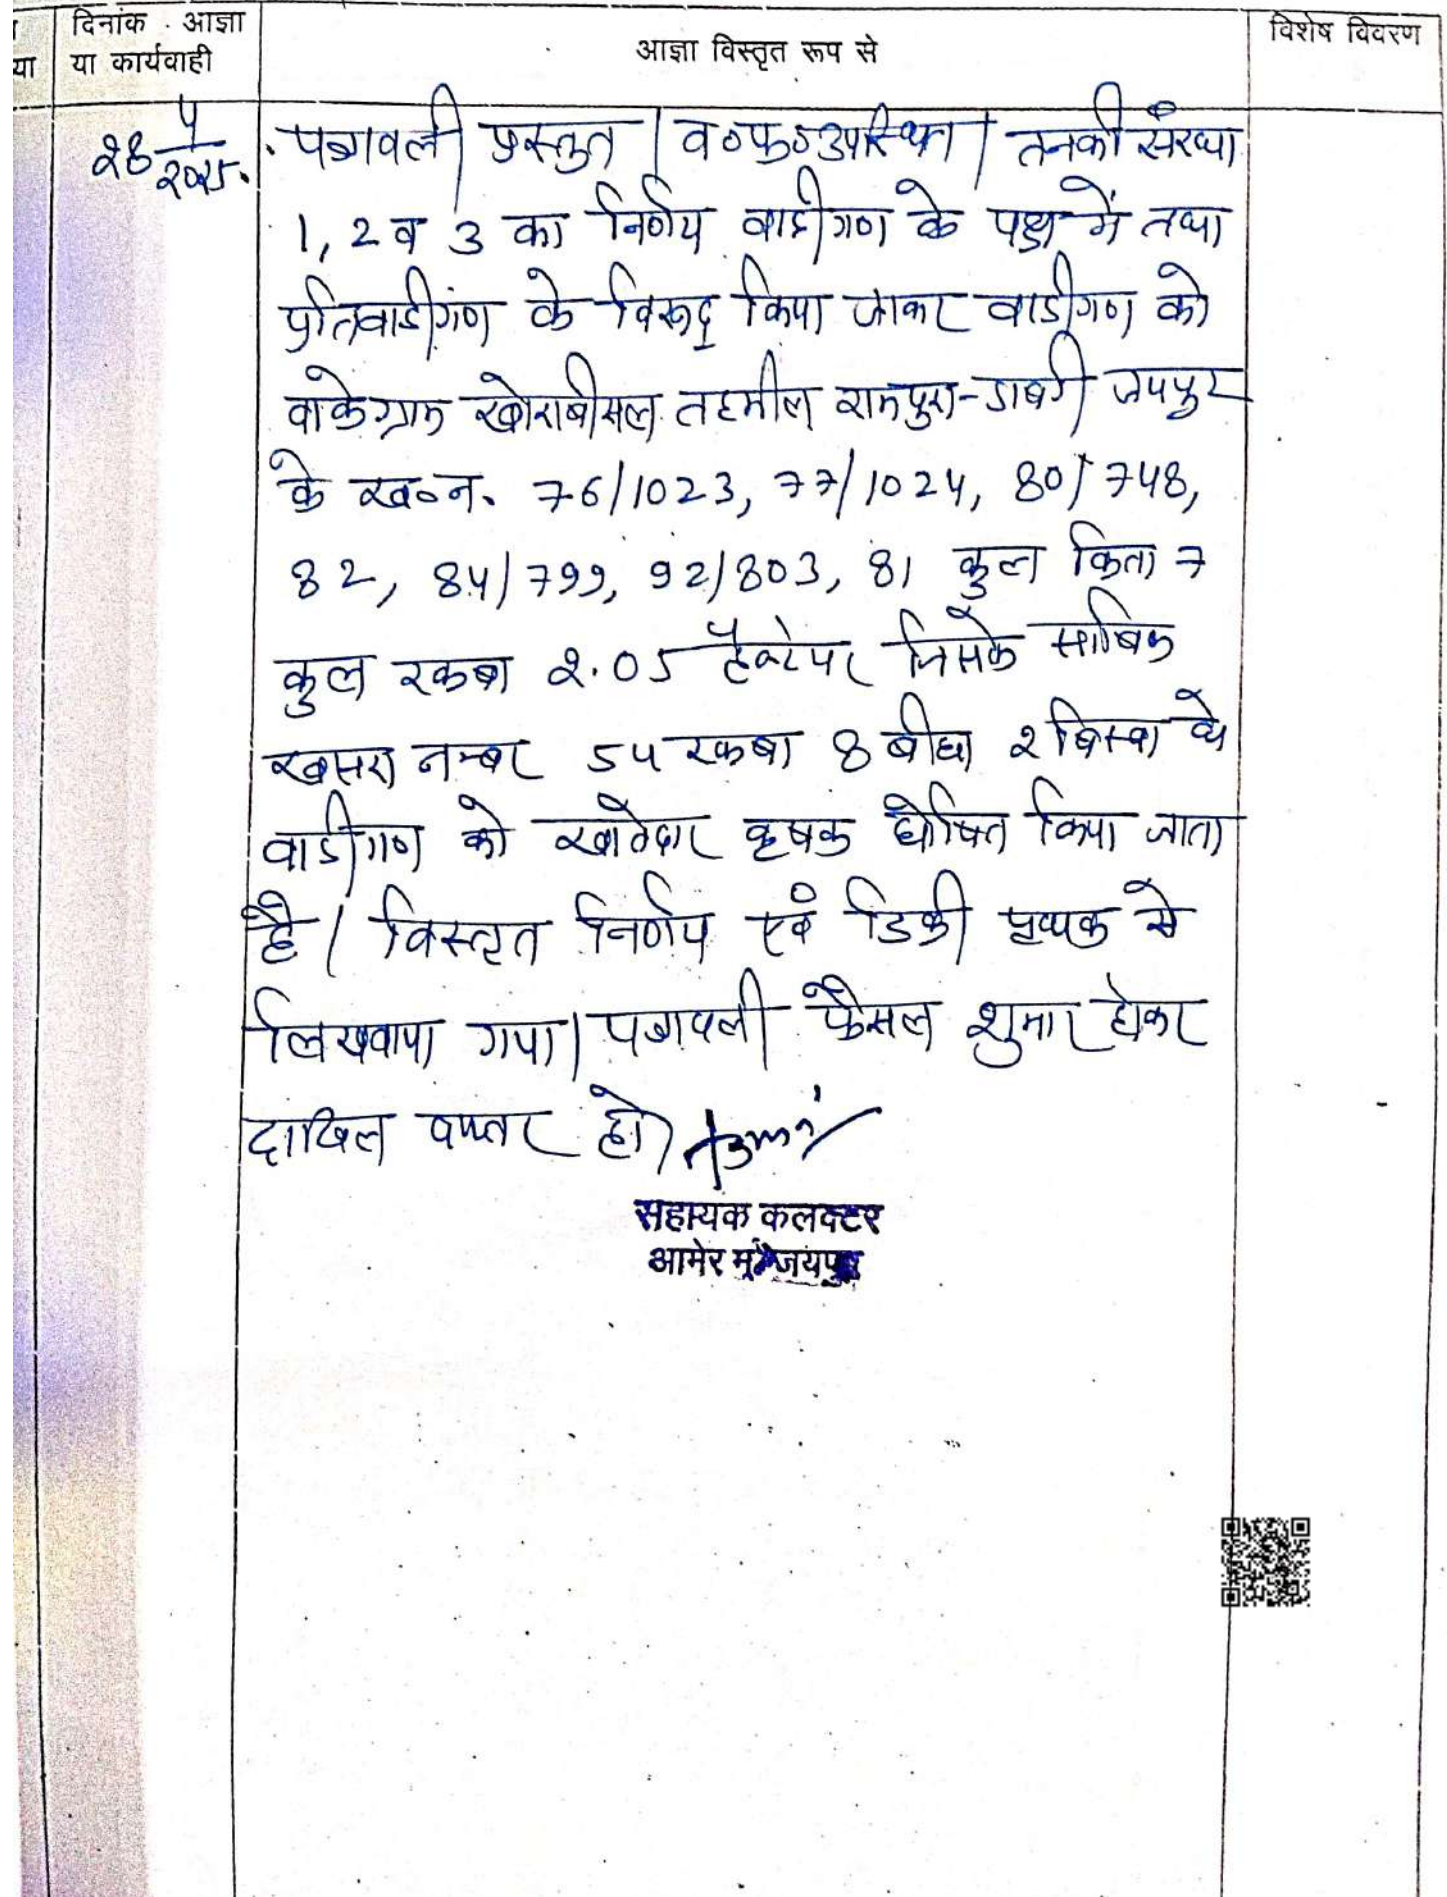 दिनांक . आज्ञा
या कार्यवाही
या
आज्ञा विस्तृत रूप से
विशेष विवरण
28 4/2025. पत्रावली प्रस्तुत। व०फ०उपस्थित। तनकी संख्या
1, 2 व 3 का निर्णय वादीगण के पक्ष में तथा
प्रतिवादीगण के विरूद्ध किया जाकर वादीगण को
वाकेग्राम खोराबीसल तहसील रामपुरा-डाबडी जयपुर
के ख०न. 76/1023, 77/1024, 80/748,
82, 84/799, 92/803, 81 कुल किता 7
कुल रकबा 2.05 हैक्टेयर जिसके साबिक
खसरा नम्बर 54 रकबा 8 बीघा 2 बिस्वा थे
वादीगण को खातेदार कृषक घोषित किया जाता
है। विस्तृत निर्णय एवं डिक्री पृथक से
लिखवाया गया। पत्रावली फैसल शुमार होकर
दाखिल दफ्तर हो।
सहायक कलक्टर
आमेर मु० जयपुर